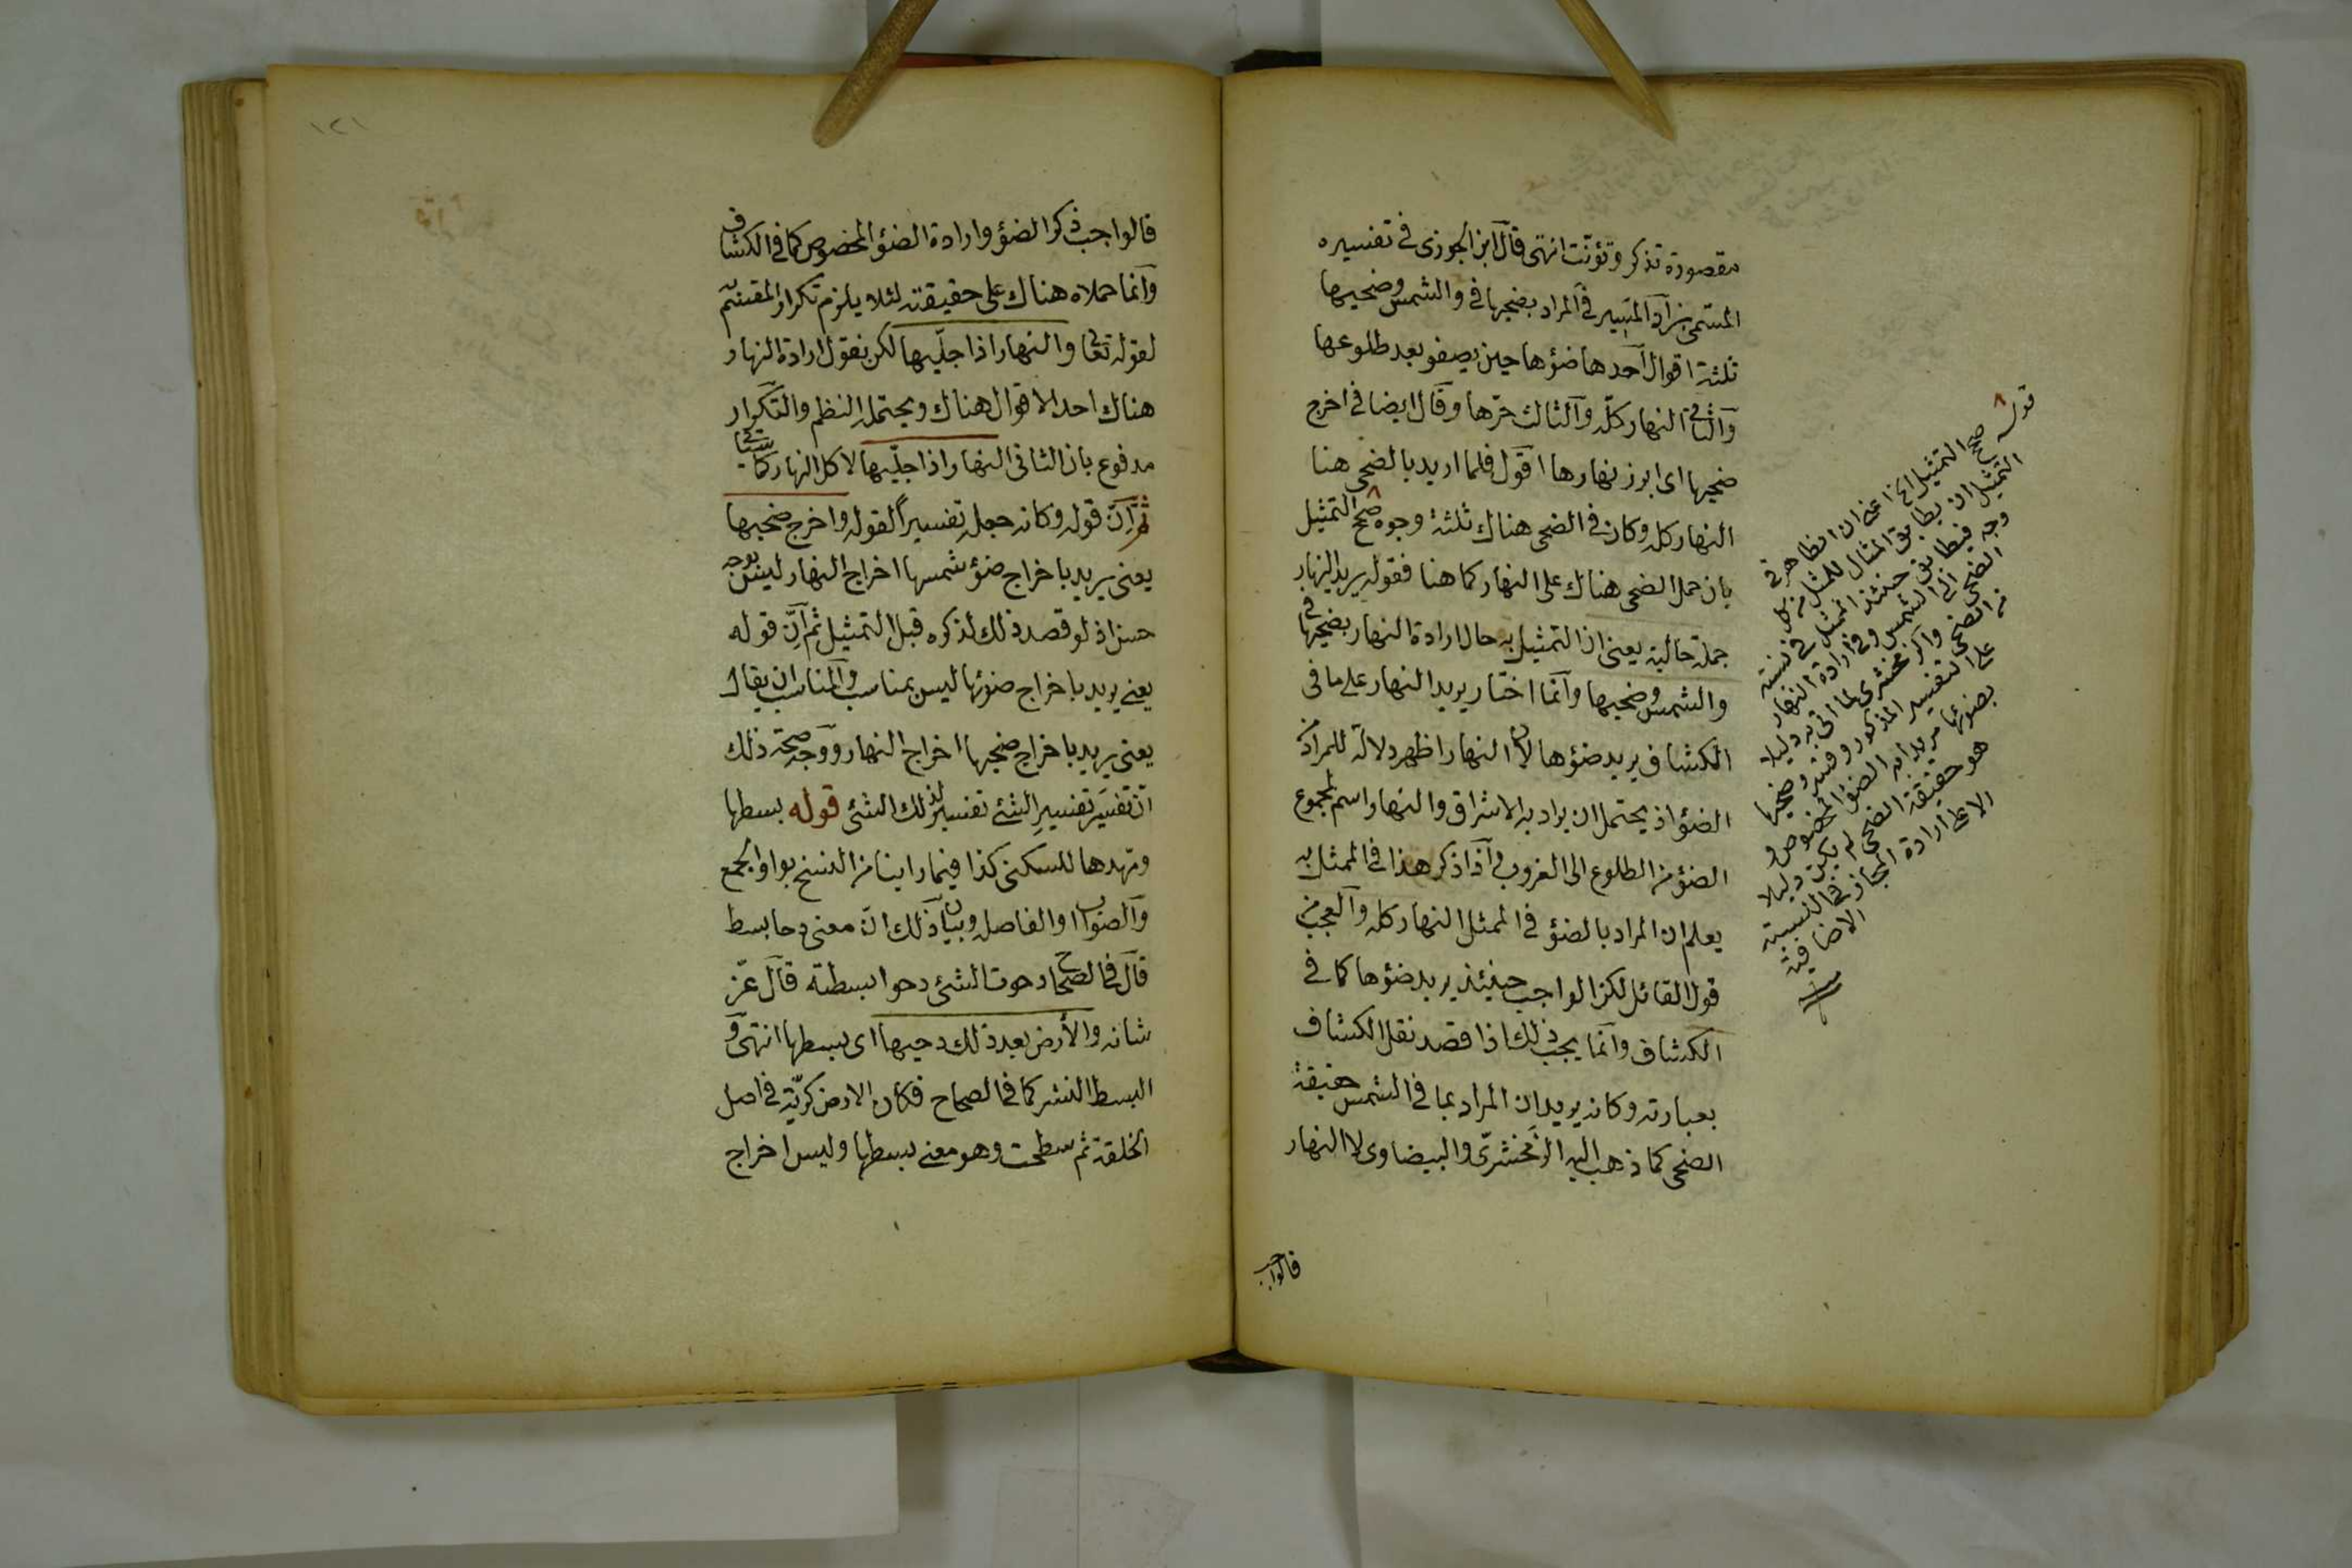 مقصورة تذكر وتؤنث انتهى قال ابن الجوزى فى تفسيره
المسمى بزاد المسير فى المراد بضحيها فى والشمس وضحيها
ثلثة اقوال احدها ضؤها حين يصفو بعد طلوعها
والثانى النهار كلّه والثالث حرّها وقال ايضا فى اخرج
ضحيها اى ابرز نهارها اقول فلما اريد بالضحى هنا
النهار كله وكان فى الضحى هناك ثلثة وجوه صح التمثيل
بان حمل الضحى هناك على النهار كما هنا فقوله يريد النهار
جملة حالية يعنى ان التمثيل به حال ارادة النهار بضحيها فى
والشمس وضحيها وانما اختار يريد النهار على ما فى
الكشاف يريد ضؤها لان النهار اظهر دلالة للمراد من
الضؤ اذ يحتمل ان يراد به الاشراق والنهار اسم لمجموع
الضؤ من الطلوع الى الغروب واذا ذكر هذا فى الممثل به
يعلم ان المراد بالضؤ فى الممثل النهار كله والعجب من
قول القائل لكن الواجب حينئذ يريد ضؤها كما فى
الكشاف وانما يجب ذلك اذا قصد نقل الكشاف
بعبارته وكانه يريد ان المراد بما فى الشمس حقيقة
الضحى كما ذهب اليه الزمخشرىّ والبيضاوى لا النهار
قالواجب
قوله صح التمثيل الخ اعنى ان الظاهر فى
التمثيل ان يطابق المثال للممثل من كل
وجه فيطابق حينئذ الممثل فى نسبة
الضحى الى الشمس وفى ارادة النهار
من الضحى والزمخشرى لما اتى به دليلا
على التفسير المذكور وفسر وضحيها
بضوئها مريدا به الضؤ المخصوص و
هو حقيقة الضحى لم يكن دليلا
الا على ارادة المجاز فى النسبة
الاضافية
١٢١
قالواجب ذكر الضؤ وارادة الضؤ المخصوص كما فى الكشاف
وانما حملاه هناك على حقيقته لئلا يلزم تكرار المقسم
لقوله تعالى والنهار اذا جلّيها لكن نقول ارادة النهار
هناك احد الاقوال هناك ويحتمله النظم والتكرار
مدفوع بان الثانى النهار اذا جلّيها لا كل النهار كما سيأتى
ثم انّ قوله وكانه جعله تفسيراً لقوله واخرج ضحيها
يعنى يريد باخراج ضؤ شمسها اخراج النهار ليس بوجه
حسن اذ لو قصد ذلك لذكره قبل التمثيل ثم انّ قوله
يعنى يريد باخراج ضوئها ليس بمناسب والمناسب ان يقال
يعنى يريد باخراج ضحيها اخراج النهار ووجه صحة ذلك
ان تفسير تفسيرِ الشئ تفسير لذلك الشئ قوله بسطها
ومهدها للسكنى كذا فيما راينا من النسخ بواو الجمع
والصواب او الفاصلة وبيان ذلك ان معنى دحا بسط
قال فى الصحاح دحوت الشئ دحوا بسطته قال عزّ
شانه والأرض بعد ذلك دحيها اى بسطها انتهى و
البسط النشر كما فى الصحاح فكان الارض كريّة فى اصل
الخلقة ثم سطحت وهو معنى بسطها وليس اخراج